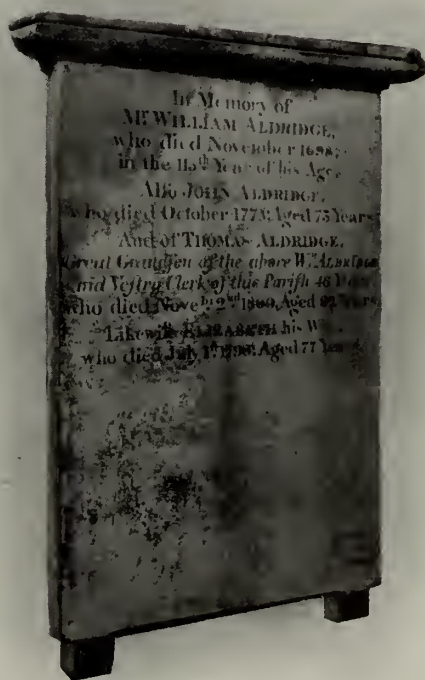 In Memory of
Mr. WILLIAM ALDRIDGE,
who died November 1698;
in the 115th Year of his Age.
Also JOHN ALDRIDGE,
who died October 1773; Aged 75 Years
And of THOMAS ALDRIDGE,
Great Grandson of the above Wm. ALDRIDGE
and Vestry Clerk of this Parish 46 Years
who died Novebr 2nd Aged Years
Likewise ELIZABETH his
who died July, Aged 77